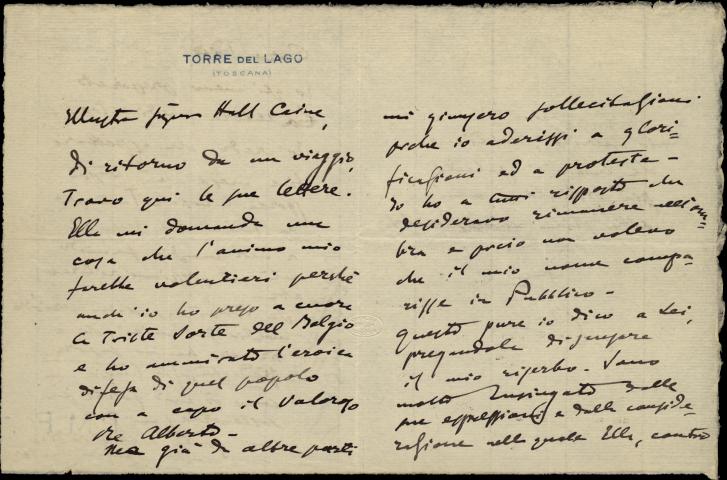 TORRE DEL LAGO
(TOSCANA)
Illustre Signor Hall Caine,
Di ritorno da un viaggio,
Trovo qui le sue lettere.
Ella mi domanda una
cosa che l'animo mio
farebbe volentieri perchè
anch'io ho preso a cuore
la Triste Sorte del Belgio
e ho ammirato l'eroica
difesa di quel popolo
con a capo il valoroso
Re Alberto -
Ma già da altre parti
mi giunsero sollecitazioni
perchè io aderissi a glori-
ficazioni ed a proteste -
Io ho a tutti risposto che
desideravo rimanere nell'om-
bra e perciò non volevo
che il mio nome compa-
risse in Pubblico -
Questo pure io dico a Lei,
pregandola di scusare
il mio riserbo. Sono
molto lusingato dalle
sue espressioni e dalla conside-
razione nella quale Ella, contro